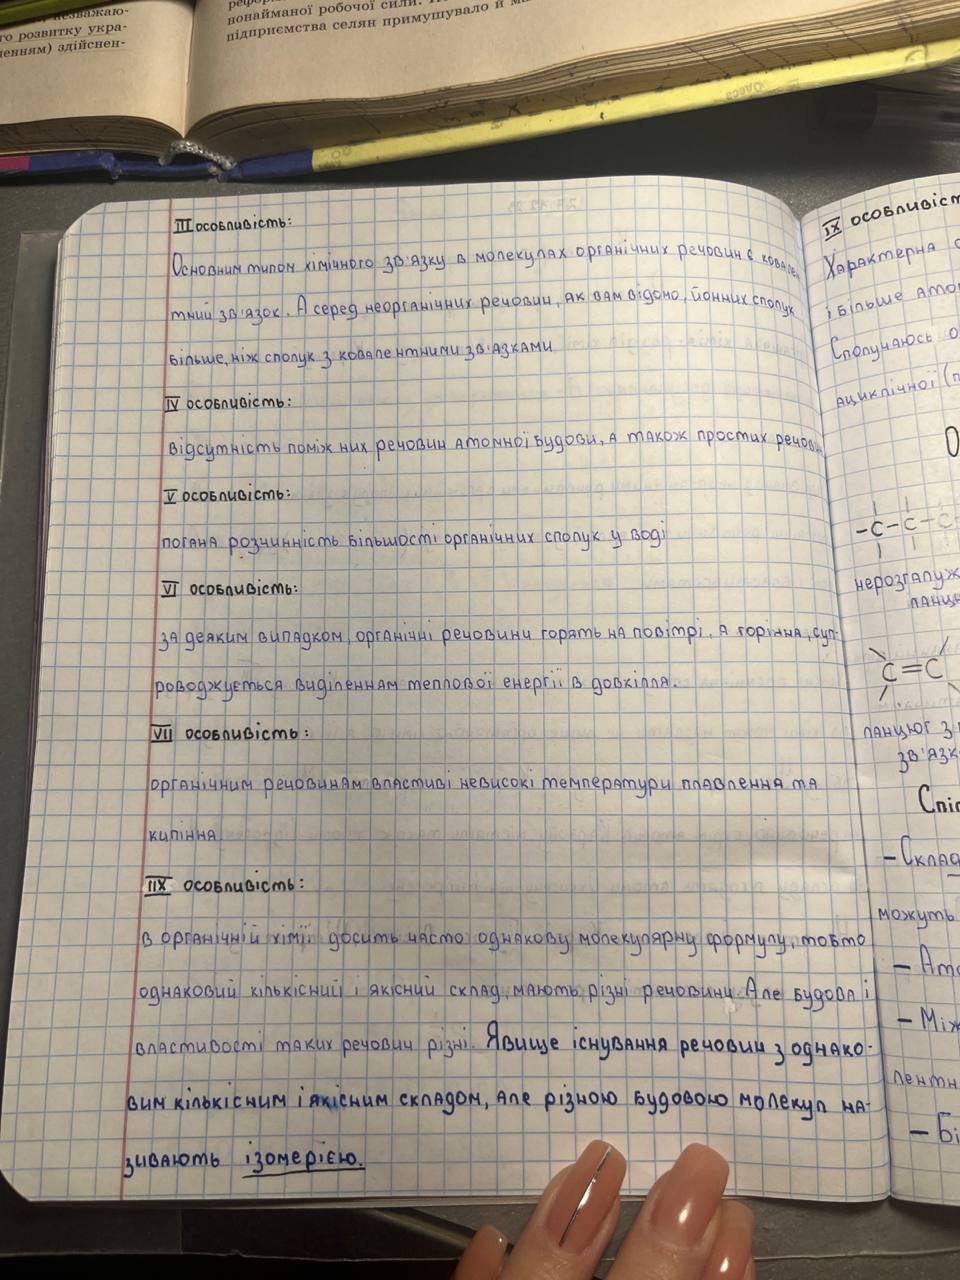 незважаю-
го розвитку укра-
ленням) здійснен-
нонайманої робочої сили.
підприємства селян примушувало й
III особливість:
Основним типом хімічного зв'язку в молекулах органічних речовин є ковален
тний зв'язок. А серед неорганічних речовин, як вам відомо, йонних сполук
більше, ніж сполук з ковалентними зв'язками
IV особливість:
відсутність поміж них речовин атомної будови, а також простих речовин
V особливість:
погана розчинність більшості органічних сполук у воді
VI особливість:
за деяким випадком, органічні речовини горять на повітрі. А горіння, суп-
роводжується виділенням теплової енергії в довкілля.
VII особливість:
органічним речовинам властиві невисокі температури плавлення та
кипіння.
IIX особливість:
в органічній хімії досить часто однакову молекулярну формулу, тобто
однаковий кількісний і якісний склад, мають різні речовини. Але будова і
властивості таких речовин різні. Явище існування речовин з однако-
вим кількісним і якісним складом, але різною будовою молекул на-
зивають ізомерією.
IX особливіст
Характерна
і більше атом
Сполучаюсь
ациклічної (п
-C-C-C
нерозгалуж
ланцю
C=C
ланцюг з
зв'язк
Спіл
- Склад
можуть
- Ато
- Між
лентн
- Бі